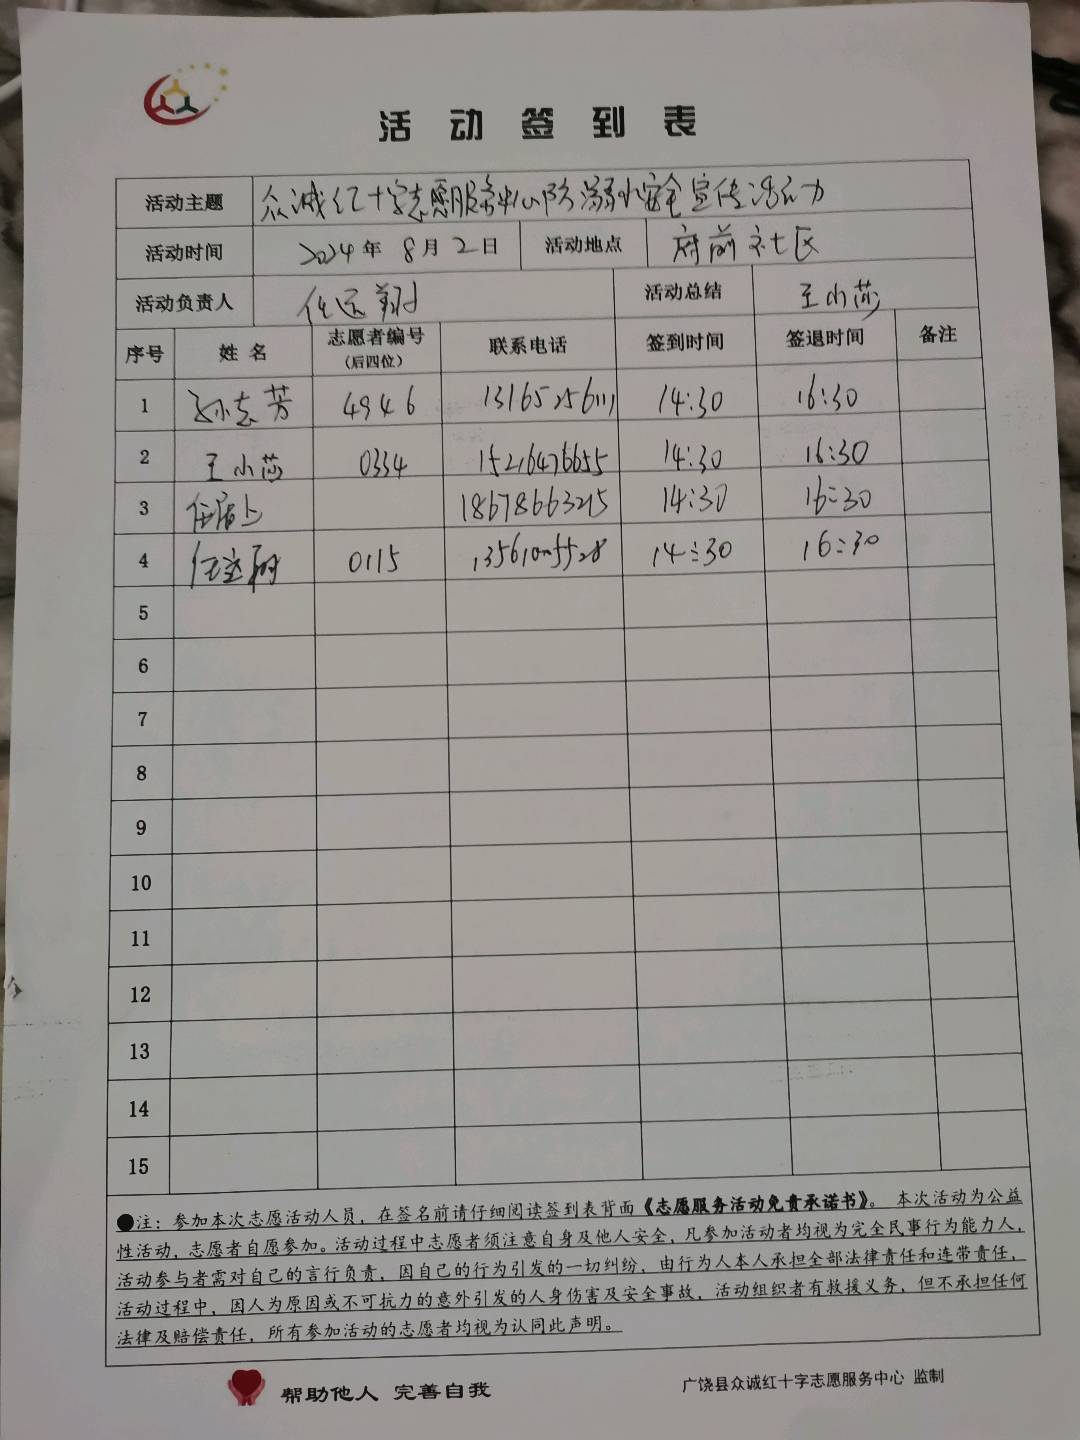 活动签到表
活动主题 众诚红十字志愿服务中心防溺水安全宣传活动
活动时间 2024年8月2日 活动地点 府前社区
活动负责人 任远翔 活动总结 王小莎
序号 姓名 志愿者编号 联系电话 签到时间 签退时间 备注
(后四位)
1 孙志芳 4946 13165256111 14:30 16:30
2 王小莎 0334 15216476655 14:30 16:30
3 18678663215 14:30 16:30
4 0115 14:30 16:30
5
6
7
8
9
10
11
12
13
14
15
●注：参加本次志愿活动人员，在签名前请仔细阅读签到表背面《志愿服务活动免责承诺书》。本次活动为公益
性活动，志愿者自愿参加。活动过程中志愿者须注意自身及他人安全，凡参加活动者均视为完全民事行为能力人，
活动参与者需对自己的言行负责，因自己的行为引发的一切纠纷，由行为人本人承担全部法律责任和连带责任，
活动过程中，因人为原因或不可抗力的意外引发的人身伤害及安全事故，活动组织者有救援义务，但不承担任何
法律及赔偿责任，所有参加活动的志愿者均视为认同此声明。
帮助他人 完善自我 广饶县众诚红十字志愿服务中心 监制